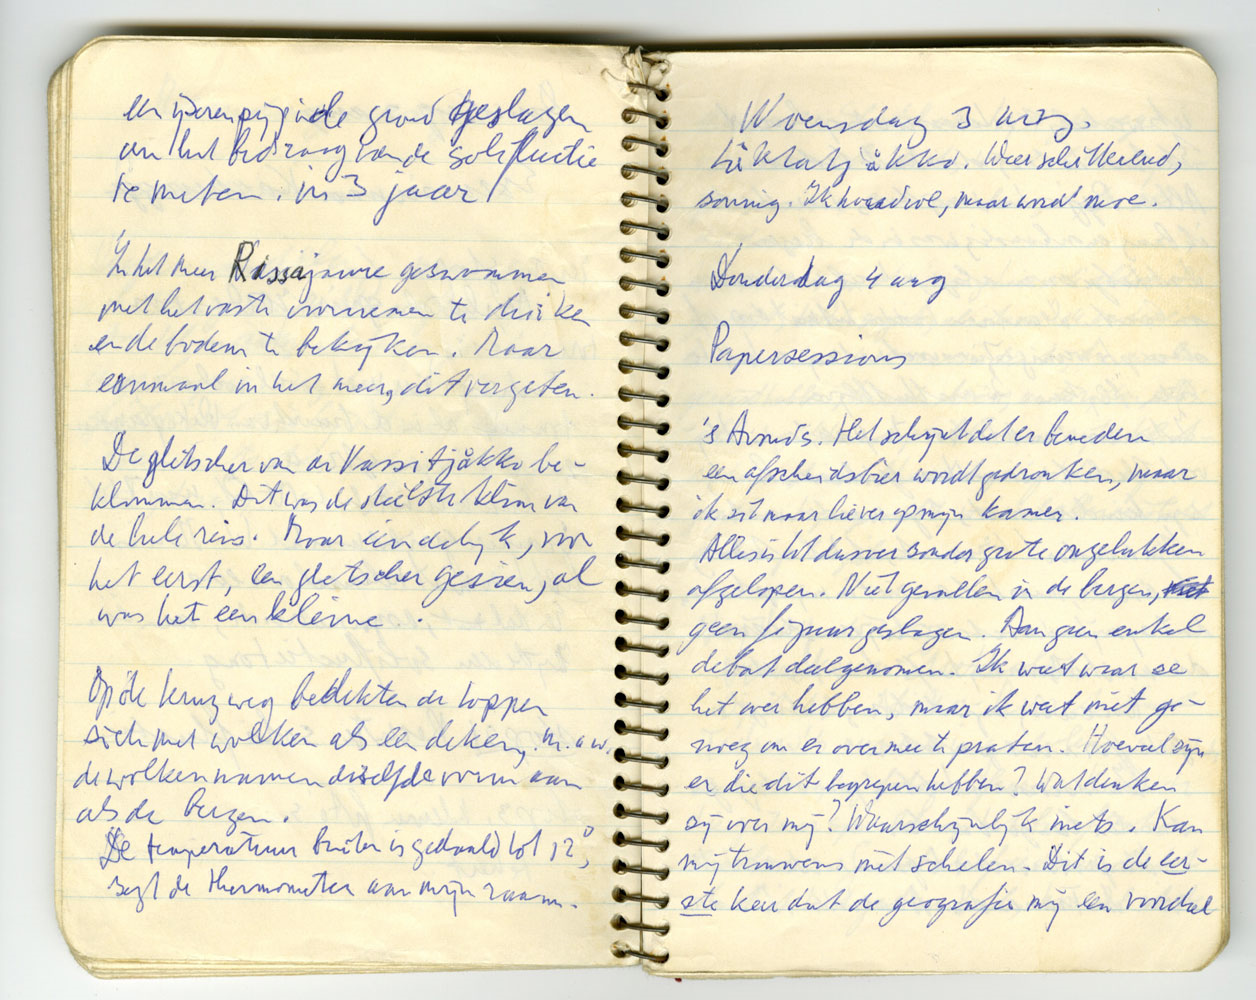 een ijzeren pijp in de grond geslagen
om het bedrag van de solifluctie
te meten. in 3 jaar
In het meer Rissajaure gezwommen
met het vaste voornemen te drinken
en de bodem te bekijken. Maar
eenmaal in het meer, dit vergeten.
De gletscher van de Vassitjåkko be-
klommen. Dit was de steilste klim van
de hele reis. Maar eindelijk, voor
het eerst, een gletscher gezien, al
was het een kleine.
Op de terugweg bedekten de toppen
zich met wolken als een deken, m.a.w.
de wolken namen dezelfde vorm aan
als de bergen.
De temperatuur buiten is gedaald tot 12°,
zegt de thermometer aan mijn raam.
Woensdag 3 aug.
Låktatjåkko. Weer schitterend,
zonnig. Ik hou wel, maar word moe.
Donderdag 4 aug
Papersessions
's Avonds. Het schijnt dat er beneden
een afscheidsbier wordt gedronken, maar
ik zit maar liever op mijn kamer.
Alles is tot dusver zonder grote ongelukken
afgelopen. Niet gevallen in de bergen,
geen figuur geslagen. Aan geen enkel
debat deelgenomen. Ik weet waar ze
het over hebben, maar ik weet niet ge-
noeg om er over mee te praten. Hoeveel zijn
er die dit begrepen hebben? Wat denken
zij over mij? Waarschijnlijk niets. Kan
mij trouwens niet schelen. Dit is de eer-
ste keer dat de geografie mij een voordeel